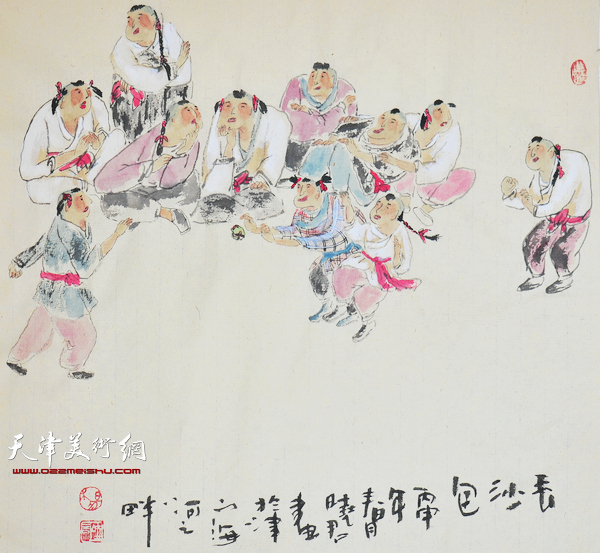 丢沙包
丙申
年
春月
曉
畫
於津
门海
河之
畔
天津美術網
www.022meishu.com